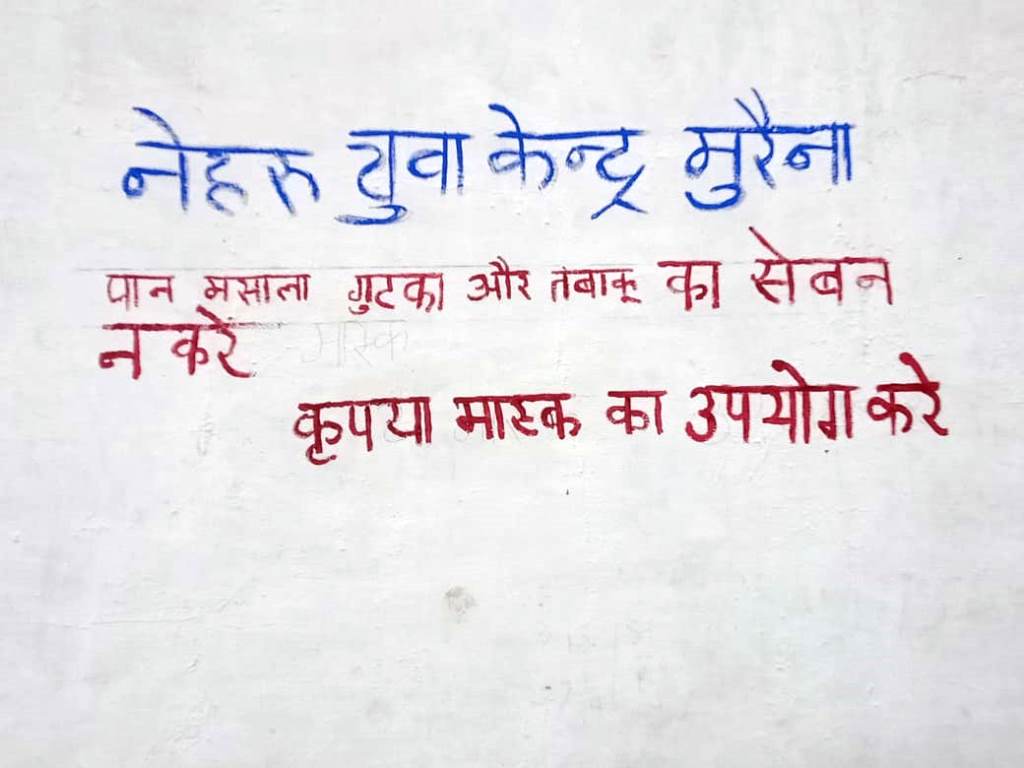 नेहरु युवा केन्द्र मुरैना
पान मसाला गुटका और तबाकू का सेबन
न करे
मास्क
कृपया मास्क का उपयोग करे